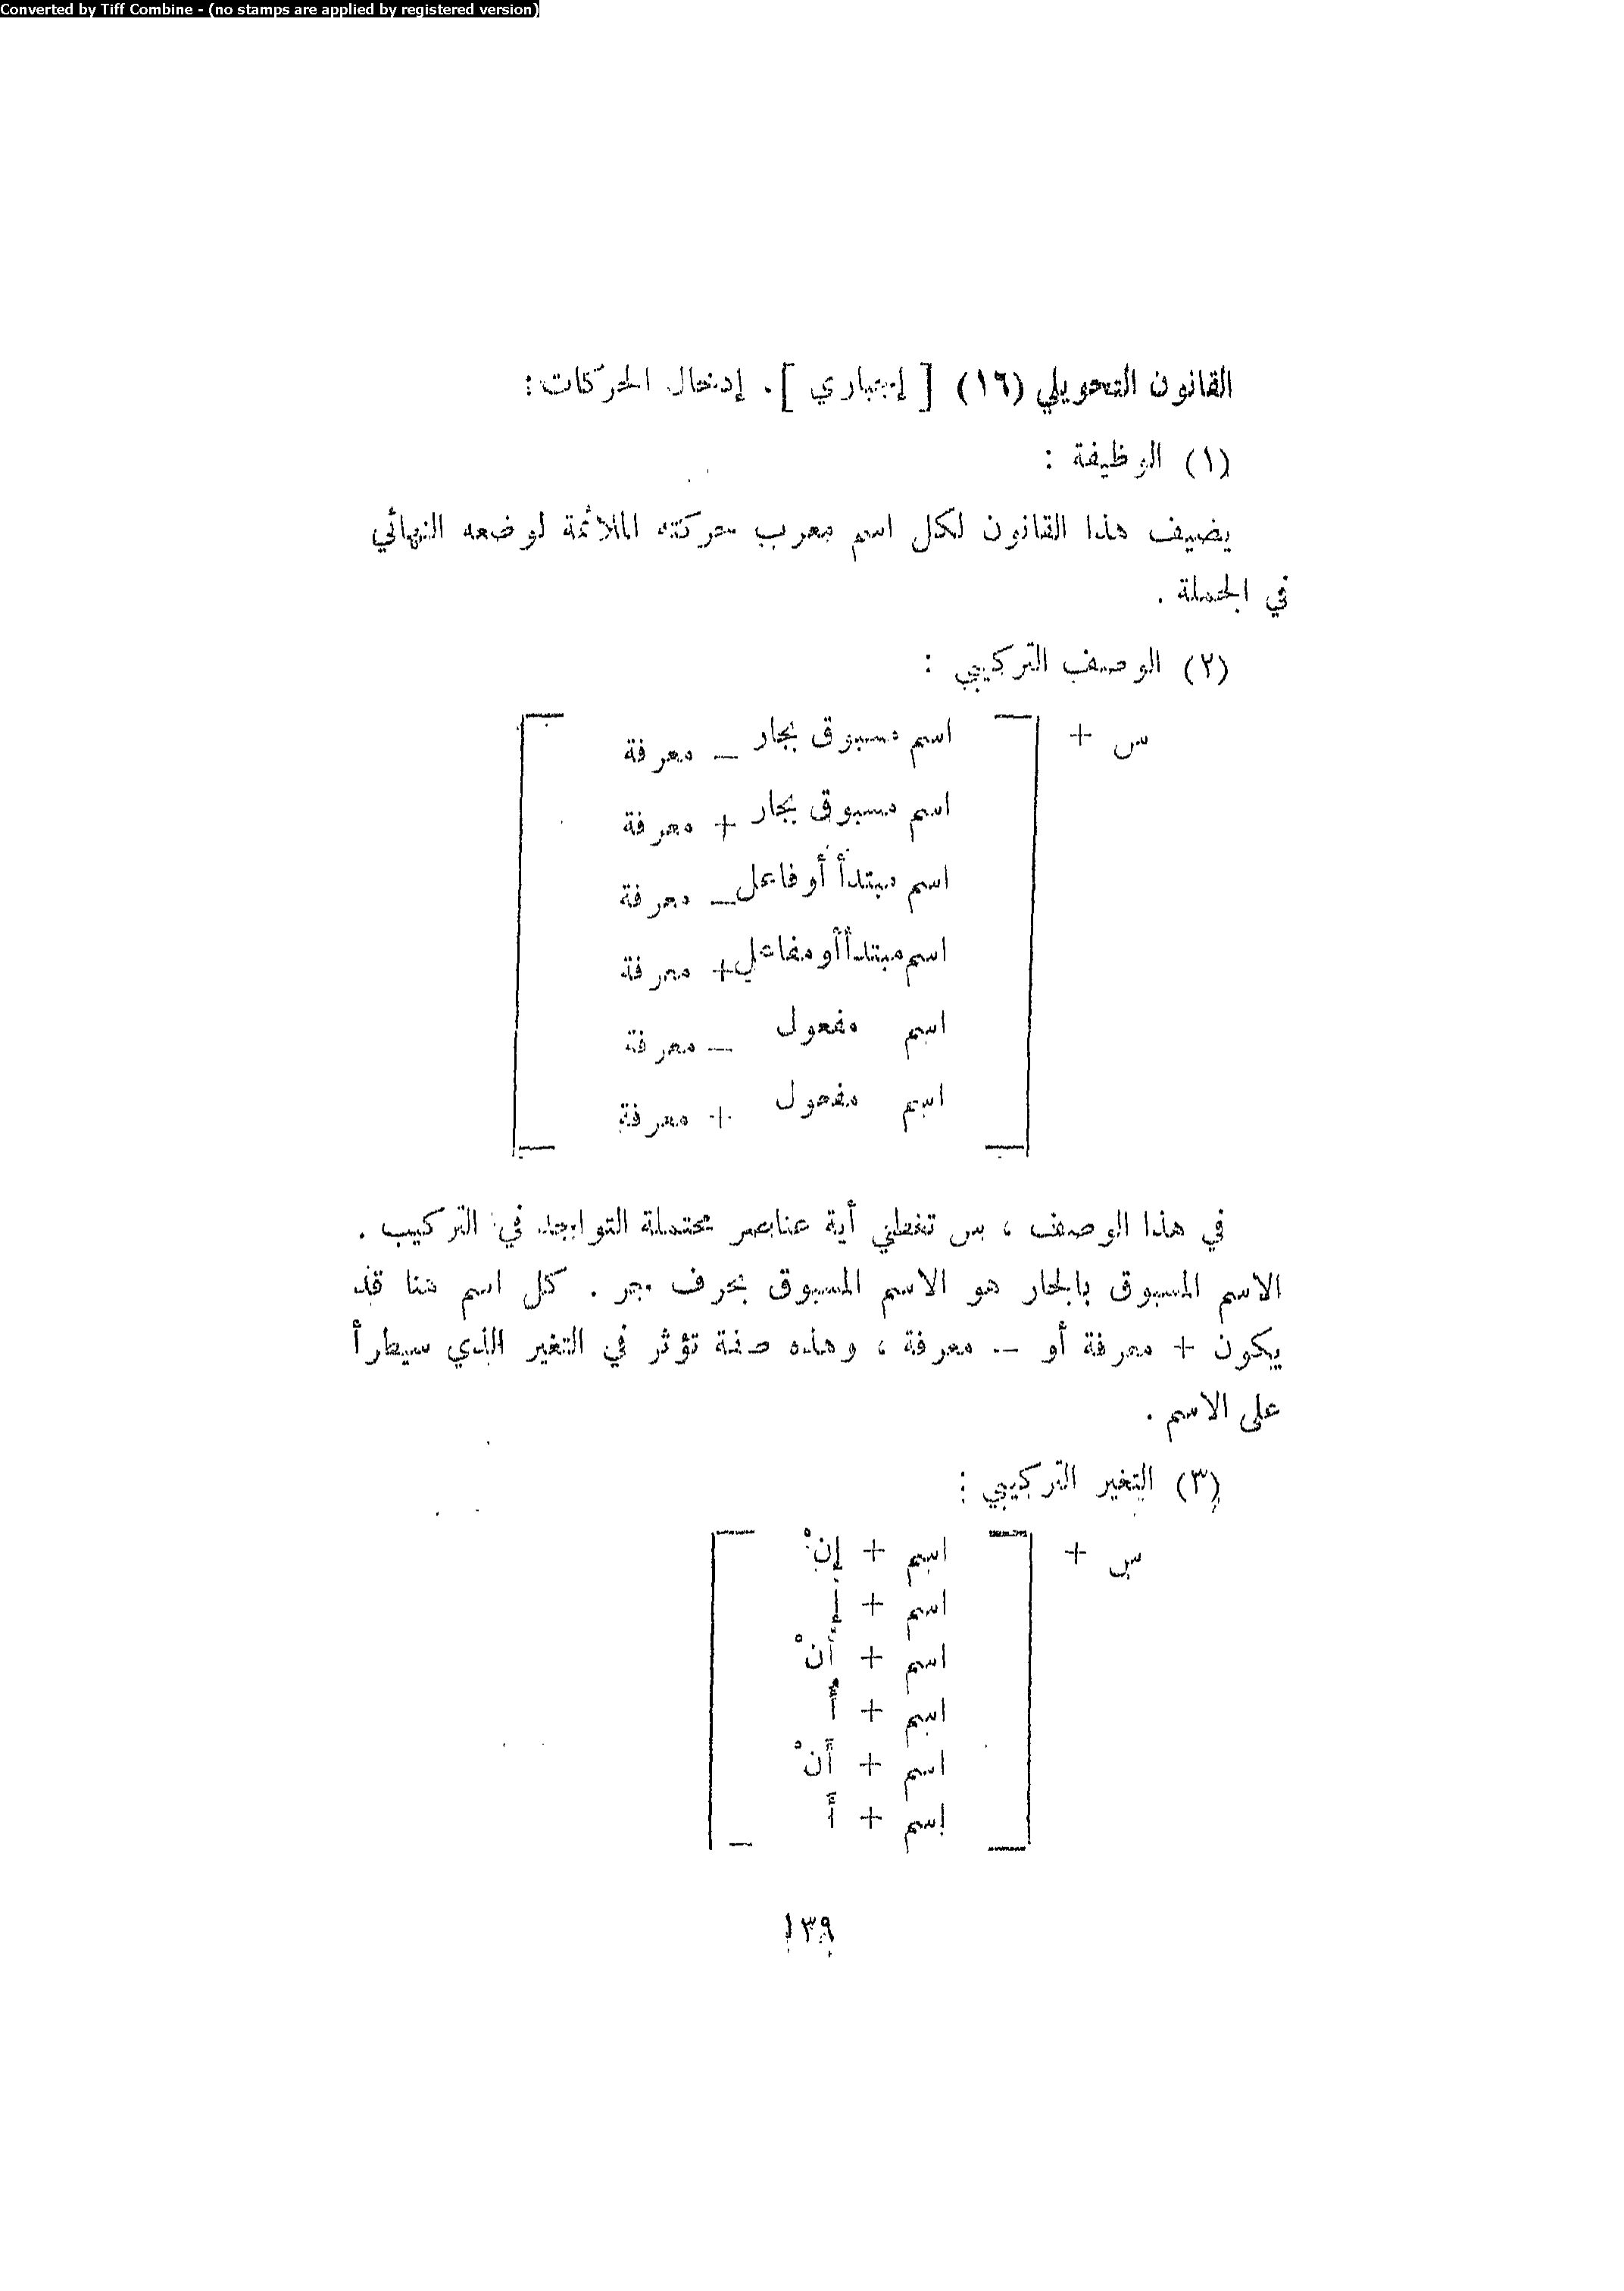 Converted by Tiff Combine - (no stamps are applied by registered version)
القانون التحويلي (١٦) [ إجباري ]. إدخال الحركات :
(١) الوظيفة :
يضيف هذا القانون لكل اسم معرب حركته الملائمة لوضعه النهائي
في الجملة .
(٢) الوصف التركيبي :
س + اسم مسبوق بجار – معرفة
اسم مسبوق بجار + معرفة
اسم مبتدأ أو فاعل – معرفة
اسم مبتدأ أو مفاعل + معرفة
اسم مفعول – معرفة
اسم مفعول + معرفة
في هذا الوصف ، س تغطي أية عناصر محتملة التواجد في التركيب .
الاسم المسبوق بالجار هو الاسم المسبوق بحرف جر . كل اسم هنا قد
يكون + معرفة أو – معرفة ، وهذه صفة تؤثر في التغير الذي سيطرأ
على الاسم .
(٣) التغير التركيبي :
س + اسم + إِنْ
اسم + إِ
اسم + أُنْ
اسم + أُ
اسم + أَنْ
اسم + أَ
١٣٩